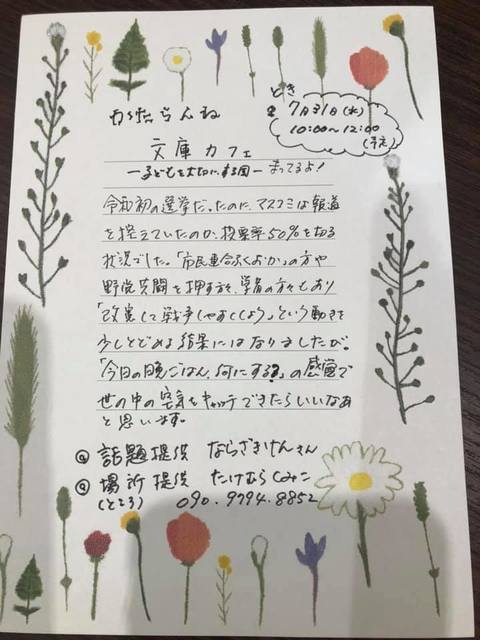 とき
7月31日(水)
10:00~12:00
(予定)
かたらんね
文庫カフェ
ー子どもを大切にする国ー まってるよ!
令和初の選挙だったのに、マスコミは報道
を控えていたのか、投票率50%を切る
状況でした。「市民連合ふくおか」の方や
野党共闘を押す方々、学者の方々もあり
「改憲して戦争しやすくしよう」という動きを
少しとどめる結果にはなりましたが。
「今日の晩ごはん、何にする?」の感覚で
世の中の空気をキャッチできたらいいなあ
と思います。
話題提供 ならざきけんさん
場所提供 たけむらくみこ
(ところ) 090.9794.8852